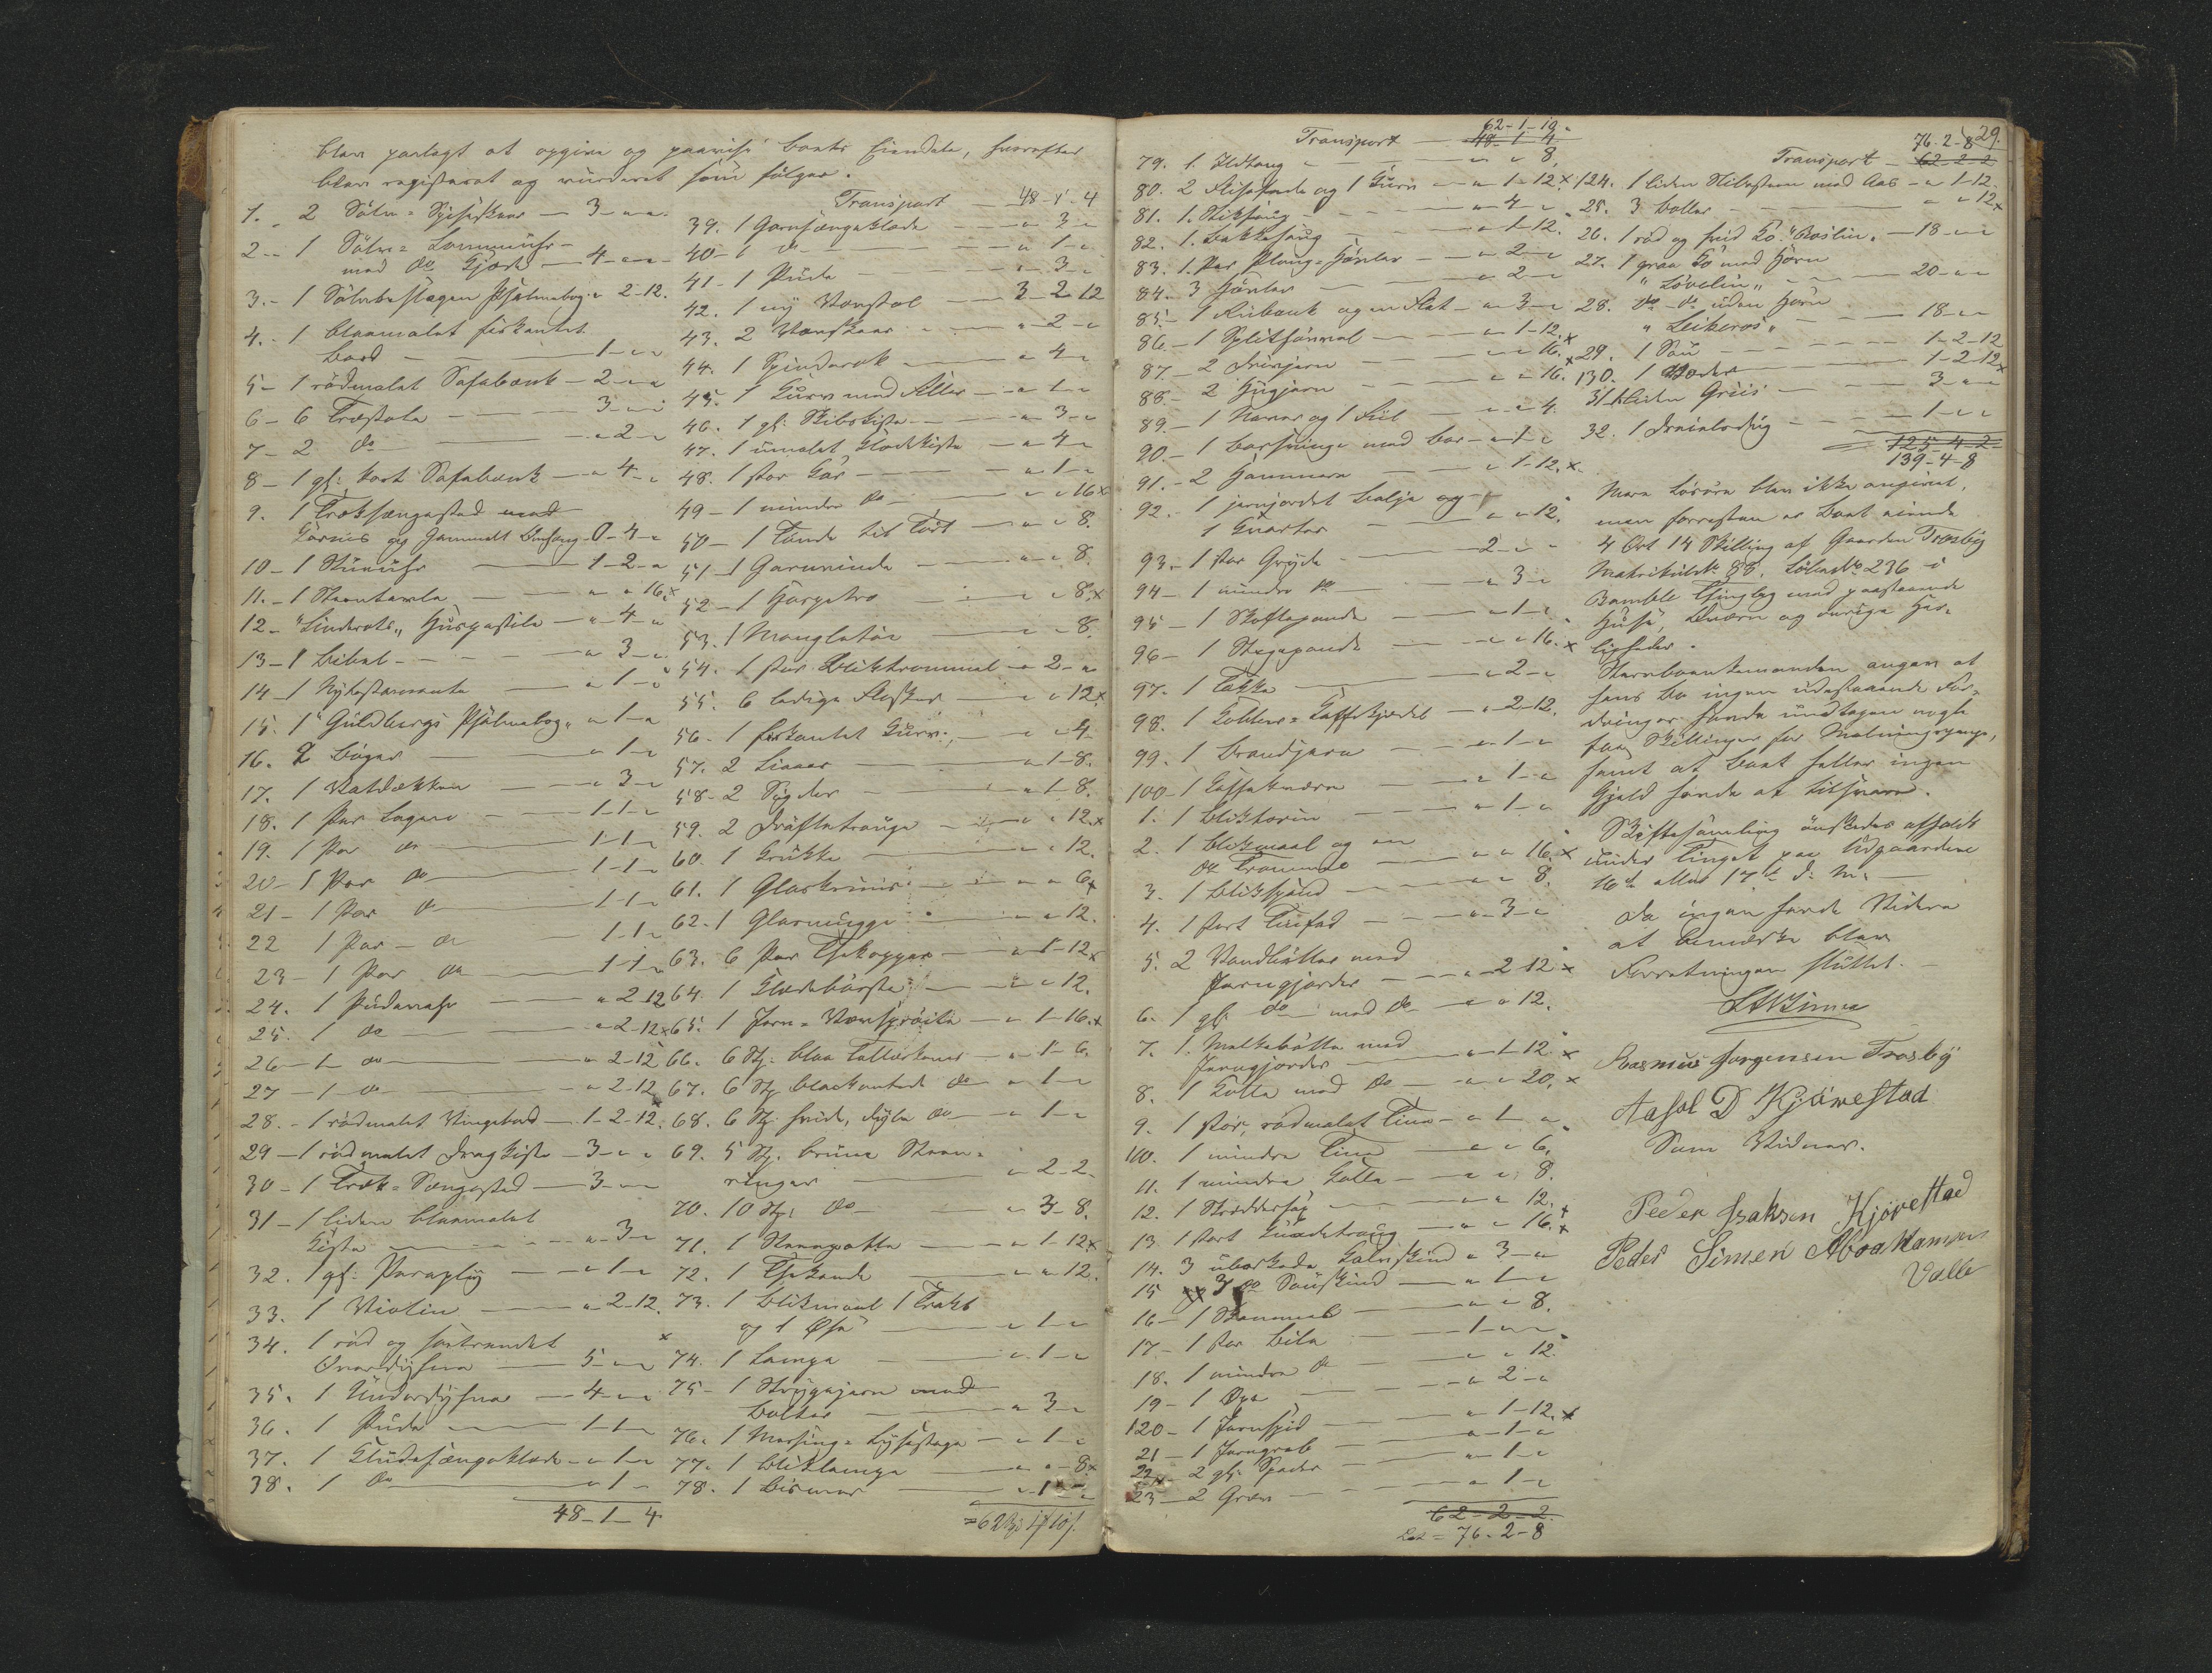 blev paalagt at opgive og paavise boets Eiendele, hvorefter
blev registeret og vurderet som følger.
1. 2 Sølv-Spiseskeer - 3 - " - "
2 - 1 Sølv- Lommeuhr
med do Kjæde - 4 - " - "
3. - 1 Sølvbeslagen Psalmebog " 2-12.
4. - 1 blaamalet firkantet
Bord - 1 - " "
5 - 1 rødmalet Sofabænk - 2 - " "
6 - 6 Træstole - 3 - " "
7 - 2 do - " 2 - "
8 - 1 gl: sort Sofabænk - " 4 - "
9. 1 Træksængested med
og gammelt Omhæng 0 - 4 - "
10 - 1 Stueuhr 1 - 2 - "
11. - 1 Steentavle - " " 16 x
12 - "Linderots" Huspostile - " 4 - "
13 - 1 Bibel - " 3 - "
14 - 1 Nytestamente - " 1 - "
15. 1 "Guldbergs Psalmebog" " 1 - "
16. 2 Bøger - " 1 - "
17. 1 - " 3 - "
18. 1 Par Lagen - 1-1 - "
19. 1 Par do 1-1 - "
20 - 1 Par do 1-1 - "
21 - 1 Par do 1-1 - "
22 1 Par - do 1-1 - "
23 - 1 Par do 1-1 - "
24. 1 Pudevahr - " 2-12
25. 1 do - " 2-12 x
26 - 1 do - " 2-12
27 - 1 do - " 2-12
28. - 1 rødmalet Vingebord - 1-2-12.
29 - 1 rødmalet Dragkiste - 3 - " "
30 - 1 Træk-Sængested - 3 - " "
31 - 1 liden blaamalet
Kiste - " 3 - "
32. 1 gl: Paraply - " 1 - "
33. 1 Violin - " 2-12.
34. 1 rød og sortrandet
Overdyhne - 5 - " "
35. 1 Underdyhne - 4 - " "
36. 1 Pude - 1-1 - "
37. 1 Kludesængeklæde - " 1 - "
38. 1 do - " 1 -
48-1-4
Transport - 48-1-4
39. 1 Garnsængeklæde - " 3 - "
40 - 1 do - " 1 - "
41 - 1 Pude - " 3 - "
42. 1 ny Vævstol - 3-2-12
43. 2 Vævskeer - " 2 - "
44. 1 Spinderok - " 4 - "
45. 1 Kurv med - " 1 - "
46. 1 gl: Skibskiste - " 3 - "
47. 1 umalet Klædekiste - " 4 - "
48. 1 stor Kar - " 1 - "
49 - 1 mindre do - " " 16 x
50 - 1 Tønde til - " " 8.
51 - 1 Garnvinde - " " 8.
52 - 1 - " " 8. x
53. 1 - " " 8.
54. 1 stor Bliktrommel - " 2 - "
55. 6 ledige Flasker - " " 12 x
56. 1 firkantet Kurv - " " 4.
57. 2 Liaaer - " 1-8.
58 - 2 Sigder - " 1-8.
59. 2 Drøftetrauge - " " 12. x
60. 1 Krukke - " " 12.
61. 1 - " " 6 x
62. 1 Glasmugge - " " 12.
63. 6 Par Thekopper - " 1-12 x
64. 1 Klædebørste - " " 12.
65. 1 - " 1-16. x
66. 6 Stk: blaa Tallerkener - " 1-6.
67. 6 Stk blaakantede do - " 1 - "
68. 6 Stk: hvide, dybe do - " 1 - "
69. 5 Stk. brune Steen-
- " 2-2.
70. 10 Stk: do - " 3-8.
71. 1 Steenpotte - " 1-12 x
72. 1 Thekande - " " 12.
73. 1 Blikmaal 1 Trakt
og 1 Øse - " 1 - "
74. 1 Lampe - " 1 - "
75 - 1 Strygejern med
Bolter - " 3 -
76. 1 Messing-Lysestage - " 1 - "
77. 1 Bliklampe - " " 8 x
78. 1 Bismer - " 1 - "
62-1-10.
Transport - 48-1-4
79. 1. Ildtang - " " 8.
80. 2 og 1 Kurv - " 1-12 x
81. 1. Stiksaug - " 4 - "
82. 1. Bakkesaug - " 1-12.
83. 1. Par - " 2 - "
84. 3 Høvler - " 2 -
85 - 1 - " 3 - "
86 - 1 - " 1-12. x
87 - 2 - " " 16. x
88 - 2 Hugjern - " " 16.
89 - 1 Naver og 1 Fiil - " " 4.
90 - 1 med Bor - " 1 - "
91. - 2 Hammere - " 1-12. x
92. - 1 jernjordet Balje og
1 Kvarter - " " 12.
93. - 1 stor Gryde - 2 - " "
94 - 1 mindre do - " 3 - "
95 - 1 Skaftepande - " 1 - "
96 - 1 Stegepande - " " 16. x
97. 1 Takke - " 2 - "
98. 1 Kobber-Kaffekjedel - " 2-12.
99. 1 Brandjern - " 1 - "
100 - 1 Kaffekværn - " 1 - "
1. 1 - " 1 - "
2. 1 Blikmaal og en
do Tromme - " " 16. x
3. 1 Blikspand - " " 8.
4. 1 stort Tinfad - " 3 - "
5. 2 Vandbøtter med
Jerngjorder - " 2-12 x
6. 1 gl: do med do - " " 12.
7. 1. Melkebøtte med
Jerngjorder - " 1-12. x
8. 1 Kolle med do - " " 20. x
9. 1 stor, rødmalet Tine - " 1 - "
110. 1 mindre Tine - " " 6.
11. 1 mindre Kolle - " " 8.
12. 1 - " " 12. x
13. 1 stort - " " 16. x
14. 3 Kalveskind " 3 - "
15 3 do Saueskind - " 1 - "
16 - 1 Skammel - " " 8.
17. - 1 stor Bile - 1 - " "
18. 1 mindre do - " " 12.
19 - 1 Øxe - " 2 - "
120 - 1 Jernspid - " 1-12. x
21 - 1 Jerngreb - " 1 - "
22 - 2 gl: Spader - " 1 - "
23 - 2 Grev - " 1 - "
62-2-2.
= 76-2-8
29.
76-2-8
Transport - 62-2-2
124. 1 liden Slibesteen med Aas - " 1-12.
25. 3 Baller - " " 12 x
26. 1 rød og hvid Ko "Roslin" - 18 - " "
27. 1 graa Ko med Horn
"Løvelin" - 20 - " "
28. do do uden Horn
"Leikeros" - 18 - " "
29. 1 Sau - 1-2-12
130. 1 Væder - 1-2-12 x
31 - 1 liden Griis - 3 - " "
32. 1 - 1 - " "
125-4-2
139-4-8
Mere Løsøre blev ikke angivet,
men forresten er Boet eiende
4 Ort 14 Skilling af Gaarden Trosby
Matrikuls No 88. Løbe No 236 i
Bamble Thinglag med paastaaende
Huse, Qværn og øvrige Her-
ligheder.
Stervboenkemanden angav at
hans Bo ingen udestaaende For-
dringer havde undtagen nogle
faa Skillinger for Malningspenge,
samt at Boet heller ingen
Gjeld havde at tilsvare.
Skiftesamling ønskedes afholdt
under Tinget paa
16de eller 17de d: M. -
Da ingen havde Videre
at bemærke blev
Forretningen sluttet.
Rasmus Jørgensen Trosby
D Kjørrestad
Som Vidner.
Peder Isaksen Kjørrestad
Peder Simen Abrahamsen
Valle